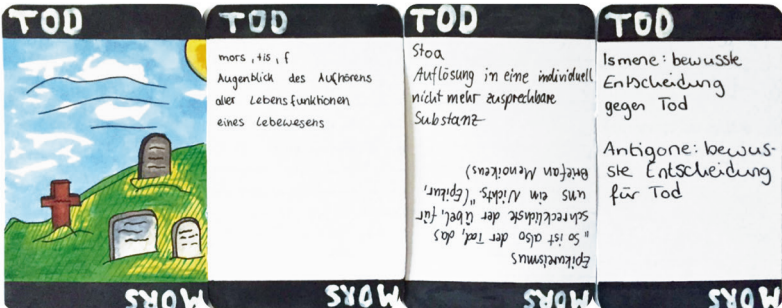 TOD
MORS
TOD
mors, tis, f
Augenblick des Aufhörens
aller Lebensfunktionen
eines Lebewesens
MORS
TOD
Stoa
Auflösung in eine individuell
nicht mehr zusprechbare
Substanz
Epikureismus
„So ist also der Tod, das
schrecklichste der Übel, für
uns ein Nichts." (Epikur,
Brief an Menoikeus)
MORS
TOD
Ismene: bewusste
Entscheidung
gegen Tod
Antigone: bewus-
ste Entscheidung
für Tod
MORS